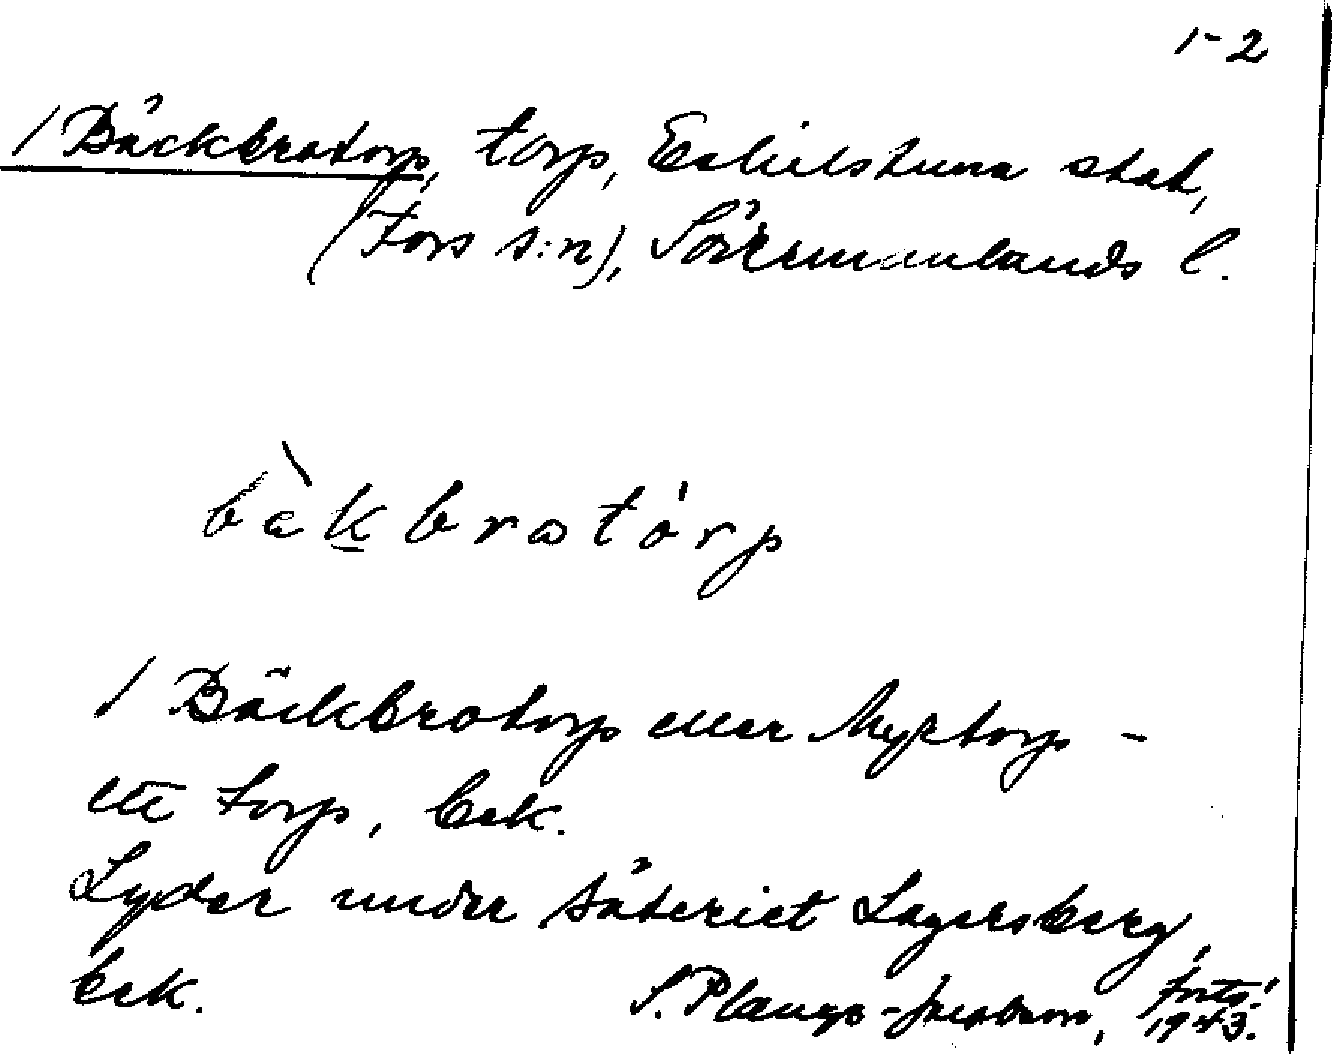 1-2
/ Bäckbrotorp, torp, Eskilstuna stad,
(Fors s:n), Södermanlands l.
bäkbrotórp
/ Bäckbrotorp eller Myrtorp -
ett torp, bek.
Lyder under säteriet Lagersberg,
bek.
S. Plauge-Jacobson, forts!
1943.